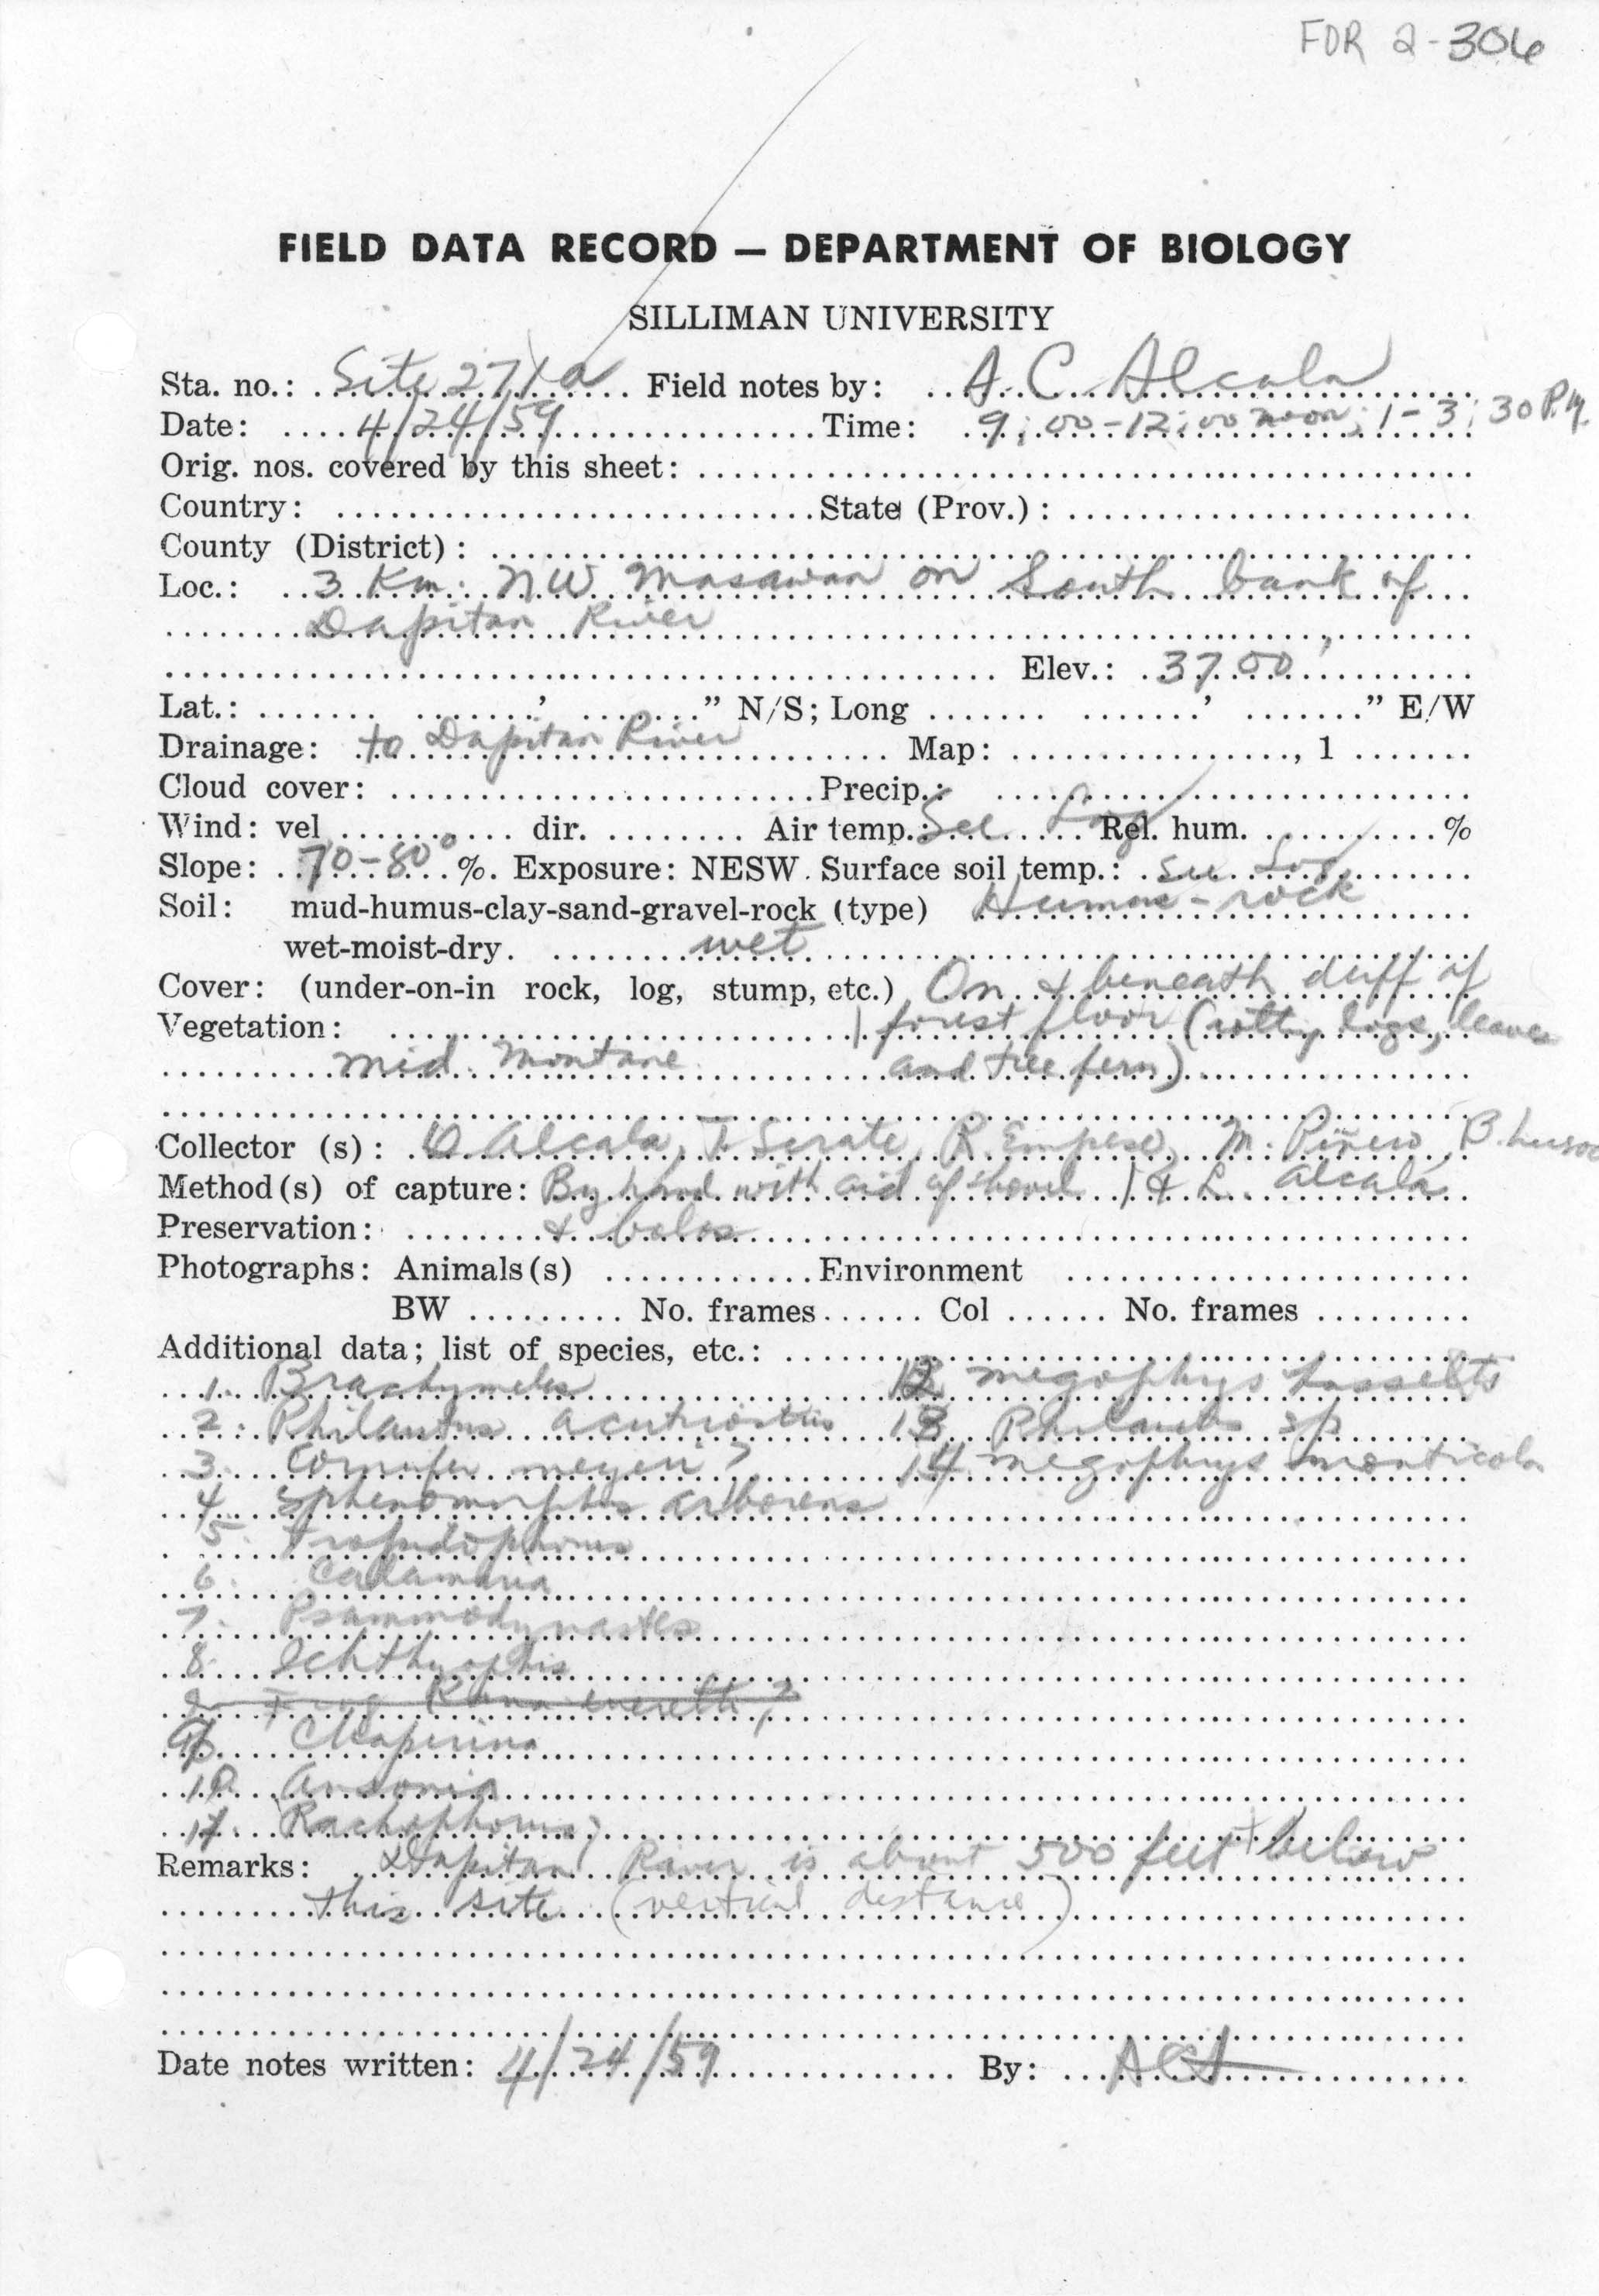 FDR 2-306
FIELD DATA RECORD — DEPARTMENT OF BIOLOGY
SILLIMAN UNIVERSITY
Sta. no.: Site 271a Field notes by: A. C. Alcala
Date: 4/24/59 Time: 9:00-12:00 noon; 1-3:30 P.M.
Orig. nos. covered by this sheet:
Country: State (Prov.):
County (District):
Loc.: 3 Km. NW Masawan on South bank of
Dapitan River
Elev.: 3700'
Lat.: ' " N/S; Long ' " E/W
Drainage: to Dapitan River Map: , 1
Cloud cover: Precip.:
Wind: vel dir. Air temp.: See Log Rel. hum. %
Slope: 70-80° %. Exposure: NESW. Surface soil temp.: See Log
Soil: mud-humus-clay-sand-gravel-rock (type) Humus - rock
wet-moist-dry. wet
Cover: (under-on-in rock, log, stump, etc.) On & beneath duff of
Vegetation: forest floor (rotting logs, leaves
mid montane and tree fern)
Collector (s): A. Alcala, T. Serate, R. Empeso, M. Piñero, B.
Method(s) of capture: By hand with aid of shovel & L. Alcala
Preservation: & bolos
Photographs: Animals(s) Environment
BW No. frames Col No. frames
Additional data; list of species, etc.:
1. Brachymeles 12 Megophys hasselti
2. Philautus acutirostris 13 Philautus sp
3. Cornufer meyeri? 14. Megophys monticola
4. Sphenomorphus arborens
5. Tropidophorus
6. Calamaria
7. Psammodynastes
8. Ichthyophis
9. Frog Rana everetti?
9. Chaperina
10. Ansonia
11. Rachophorus?
Remarks: Dapitan River is about 500 feet + below
this site (vertical distance)
Date notes written: 4/24/59 By: ACA